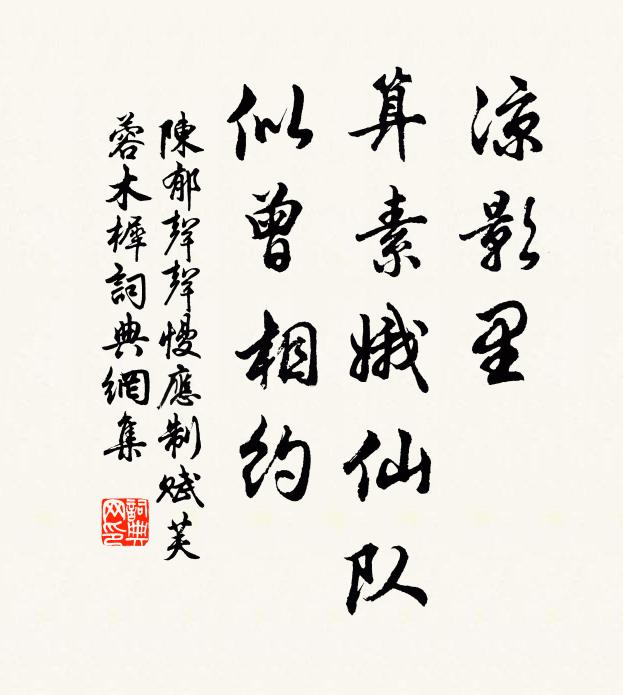 凉影里
算素娥仙队
似曾相约
陳郁聲聲慢應制賦芙
蓉木樨詞典網集
詞典网印